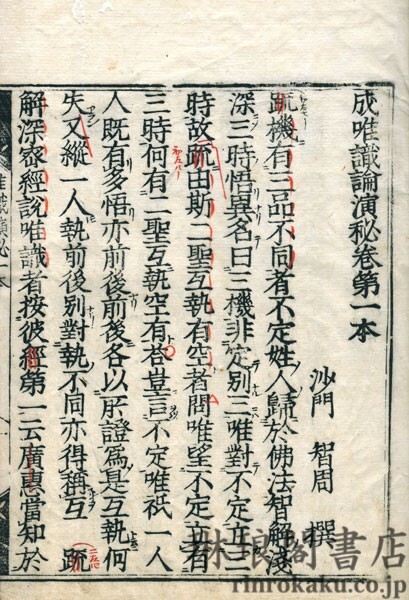 成唯識論演秘卷第一本
沙門 智周 撰
疏機有三品不同者不定姓人歸於佛法智解淺
深三時悟異名曰三機非定別三唯對不定立三
時故疏由斯二聖互執有空者問唯望不定立有
三時何有二聖互執空有荅豈言不定唯祇一人
人既有多悟亦前後前後各以所證為是互執何
失又縱一人執前後別對執不同亦得稱互 疏
解深密經說唯識者按彼經第一云廣惠當知於
唯識演秘一本
琳琅閣書店
rinrokaku.co.jp